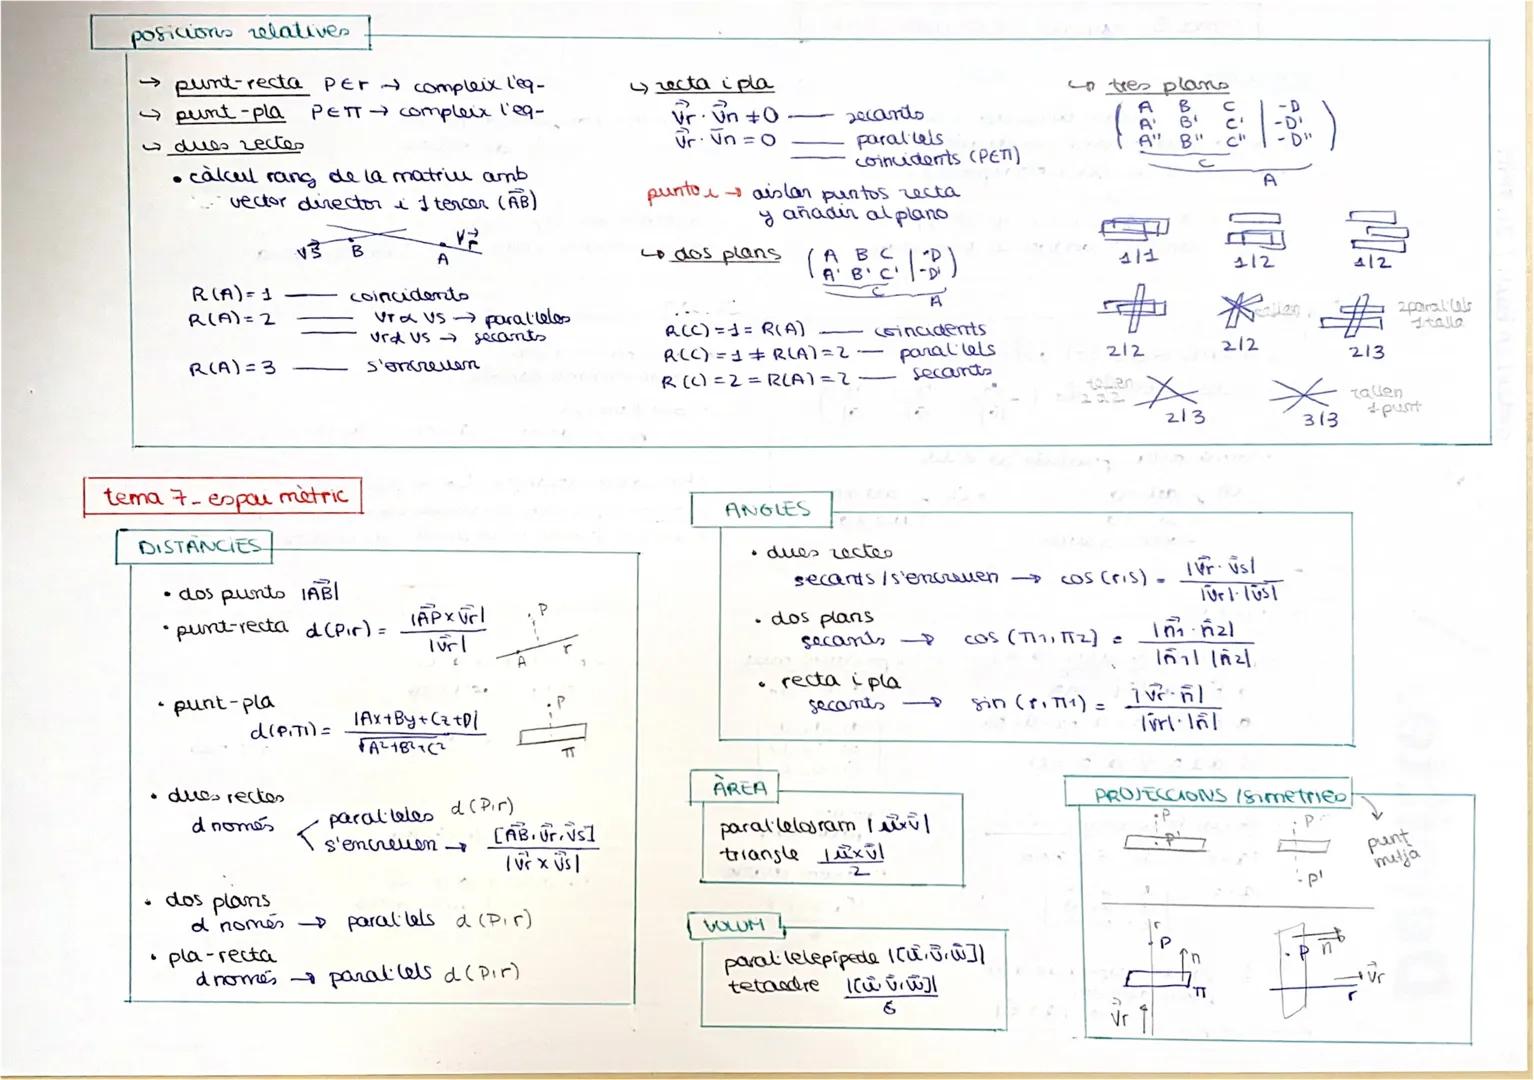 posicions relatives
→ punt-recta P∈r → compleix l'eq-
→ punt-pla P∈π → compleix l'eq-
→ dues rectes
• càlcul rang de la matriu amb
vector director i 1 tercer (AB)
vs B A vr
R(A)=1 — coincidents
R(A)=2 — vr α vs → paral·leles
— vr α vs → secants
R(A)=3 — s'encreuen
→ recta i pla
vr · vn ≠ 0 — secants
vr · vn = 0 — paral·lels
— coincidents (P∈π)
punto → aislar puntos recta
y añadir al plano
→ dos plans ( A B C | -D
A' B' C' | -D' )
C
A
R(C)=1=R(A) — coincidents
R(C)=1≠R(A)=2 — paral·lels
R(C)=2=R(A)=2 — secants
→ tres plans
( A B C | -D
A' B' C' | -D'
A'' B'' C'' | -D'' )
C
A
1/1 1/2 1/2
2paral·lels
1 talla
2/2 2/2 2/3
tallen
2/3
tallen
1 punt
3/3
tema 7- espai mètric
DISTÀNCIES
• dos punts |AB|
• punt-recta d(P,r) = |AP x vr| / |vr|
P A r
• punt-pla
d(P,π) = |Ax+By+Cz+D| / √A²+B²+C²
P π
• dues rectes
d només
paral·leles d(P,r)
s'encreuen → [AB, vr, vs] / |vr x vs|
• dos plans
d només → paral·lels d(P,r)
• pla-recta
d només → paral·lels d(P,r)
ANGLES
• dues rectes
secants /s'encreuen → cos (r,s) = |vr · vs| / |vr| · |vs|
• dos plans
secants → cos (π1, π2) = |n1 · n2| / |n1| |n2|
• recta i pla
secants → sin (r, π1) = |vr · n| / |vr| · |n|
ÀREA
paral·lelogram |u x v|
triangle |u x v| / 2
VOLUM
paral·lelepípede |[u, v, w]|
tetraedre |[u, v, w]| / 6
PROJECCIONS /simetries
punt
mitjà
P P'
P P'
r P n π vr
P n vr r